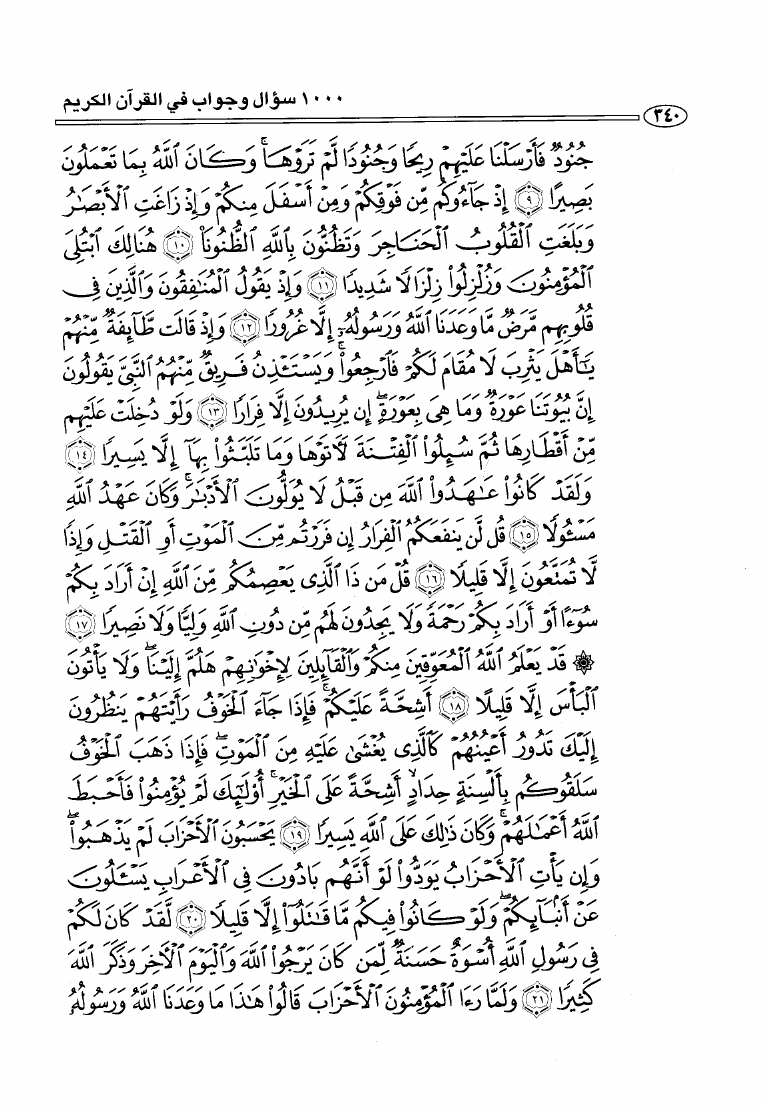 ١٠٠٠ سؤال وجواب في القرآن الكريم
٣٤٠
جُنُودٌ فَأَرْسَلْنَا عَلَيْهِمْ رِيحًا وَجُنُودًا لَّمْ تَرَوْهَا ۚ وَكَانَ ٱللَّهُ بِمَا تَعْمَلُونَ
بَصِيرًا ﴿٩﴾ إِذْ جَآءُوكُم مِّن فَوْقِكُمْ وَمِنْ أَسْفَلَ مِنكُمْ وَإِذْ زَاغَتِ ٱلْأَبْصَٰرُ
وَبَلَغَتِ ٱلْقُلُوبُ ٱلْحَنَاجِرَ وَتَظُنُّونَ بِٱللَّهِ ٱلظُّنُونَا۠ ﴿١٠﴾ هُنَالِكَ ٱبْتُلِيَ
ٱلْمُؤْمِنُونَ وَزُلْزِلُوا۟ زِلْزَالًا شَدِيدًا ﴿١١﴾ وَإِذْ يَقُولُ ٱلْمُنَٰفِقُونَ وَٱلَّذِينَ فِى
قُلُوبِهِم مَّرَضٌ مَّا وَعَدَنَا ٱللَّهُ وَرَسُولُهُۥٓ إِلَّا غُرُورًا ﴿١٢﴾ وَإِذْ قَالَت طَّآئِفَةٌ مِّنْهُمْ
يَٰٓأَهْلَ يَثْرِبَ لَا مُقَامَ لَكُمْ فَٱرْجِعُوا۟ ۚ وَيَسْتَـْٔذِنُ فَرِيقٌ مِّنْهُمُ ٱلنَّبِىَّ يَقُولُونَ
إِنَّ بُيُوتَنَا عَوْرَةٌ وَمَا هِىَ بِعَوْرَةٍ ۖ إِن يُرِيدُونَ إِلَّا فِرَارًا ﴿١٣﴾ وَلَوْ دُخِلَتْ عَلَيْهِم
مِّنْ أَقْطَارِهَا ثُمَّ سُئِلُوا۟ ٱلْفِتْنَةَ لَـَٔاتَوْهَا وَمَا تَلَبَّثُوا۟ بِهَآ إِلَّا يَسِيرًا ﴿١٤﴾
وَلَقَدْ كَانُوا۟ عَٰهَدُوا۟ ٱللَّهَ مِن قَبْلُ لَا يُوَلُّونَ ٱلْأَدْبَٰرَ ۚ وَكَانَ عَهْدُ ٱللَّهِ
مَسْـُٔولًا ﴿١٥﴾ قُل لَّن يَنفَعَكُمُ ٱلْفِرَارُ إِن فَرَرْتُم مِّنَ ٱلْمَوْتِ أَوِ ٱلْقَتْلِ وَإِذًا
لَّا تُمَتَّعُونَ إِلَّا قَلِيلًا ﴿١٦﴾ قُلْ مَن ذَا ٱلَّذِى يَعْصِمُكُم مِّنَ ٱللَّهِ إِنْ أَرَادَ بِكُمْ
سُوٓءًا أَوْ أَرَادَ بِكُمْ رَحْمَةً ۚ وَلَا يَجِدُونَ لَهُم مِّن دُونِ ٱللَّهِ وَلِيًّا وَلَا نَصِيرًا ﴿١٧﴾
۞ قَدْ يَعْلَمُ ٱللَّهُ ٱلْمُعَوِّقِينَ مِنكُمْ وَٱلْقَآئِلِينَ لِإِخْوَٰنِهِمْ هَلُمَّ إِلَيْنَا ۖ وَلَا يَأْتُونَ
ٱلْبَأْسَ إِلَّا قَلِيلًا ﴿١٨﴾ أَشِحَّةً عَلَيْكُمْ ۖ فَإِذَا جَآءَ ٱلْخَوْفُ رَأَيْتَهُمْ يَنظُرُونَ
إِلَيْكَ تَدُورُ أَعْيُنُهُمْ كَٱلَّذِى يُغْشَىٰ عَلَيْهِ مِنَ ٱلْمَوْتِ ۖ فَإِذَا ذَهَبَ ٱلْخَوْفُ
سَلَقُوكُم بِأَلْسِنَةٍ حِدَادٍ أَشِحَّةً عَلَى ٱلْخَيْرِ ۚ أُو۟لَٰٓئِكَ لَمْ يُؤْمِنُوا۟ فَأَحْبَطَ
ٱللَّهُ أَعْمَٰلَهُمْ ۚ وَكَانَ ذَٰلِكَ عَلَى ٱللَّهِ يَسِيرًا ﴿١٩﴾ يَحْسَبُونَ ٱلْأَحْزَابَ لَمْ يَذْهَبُوا۟ ۖ
وَإِن يَأْتِ ٱلْأَحْزَابُ يَوَدُّوا۟ لَوْ أَنَّهُم بَادُونَ فِى ٱلْأَعْرَابِ يَسْـَٔلُونَ
عَنْ أَنۢبَآئِكُمْ ۖ وَلَوْ كَانُوا۟ فِيكُم مَّا قَٰتَلُوٓا۟ إِلَّا قَلِيلًا ﴿٢٠﴾ لَّقَدْ كَانَ لَكُمْ
فِى رَسُولِ ٱللَّهِ أُسْوَةٌ حَسَنَةٌ لِّمَن كَانَ يَرْجُوا۟ ٱللَّهَ وَٱلْيَوْمَ ٱلْـَٔاخِرَ وَذَكَرَ ٱللَّهَ
كَثِيرًا ﴿٢١﴾ وَلَمَّا رَءَا ٱلْمُؤْمِنُونَ ٱلْأَحْزَابَ قَالُوا۟ هَٰذَا مَا وَعَدَنَا ٱللَّهُ وَرَسُولُهُۥ